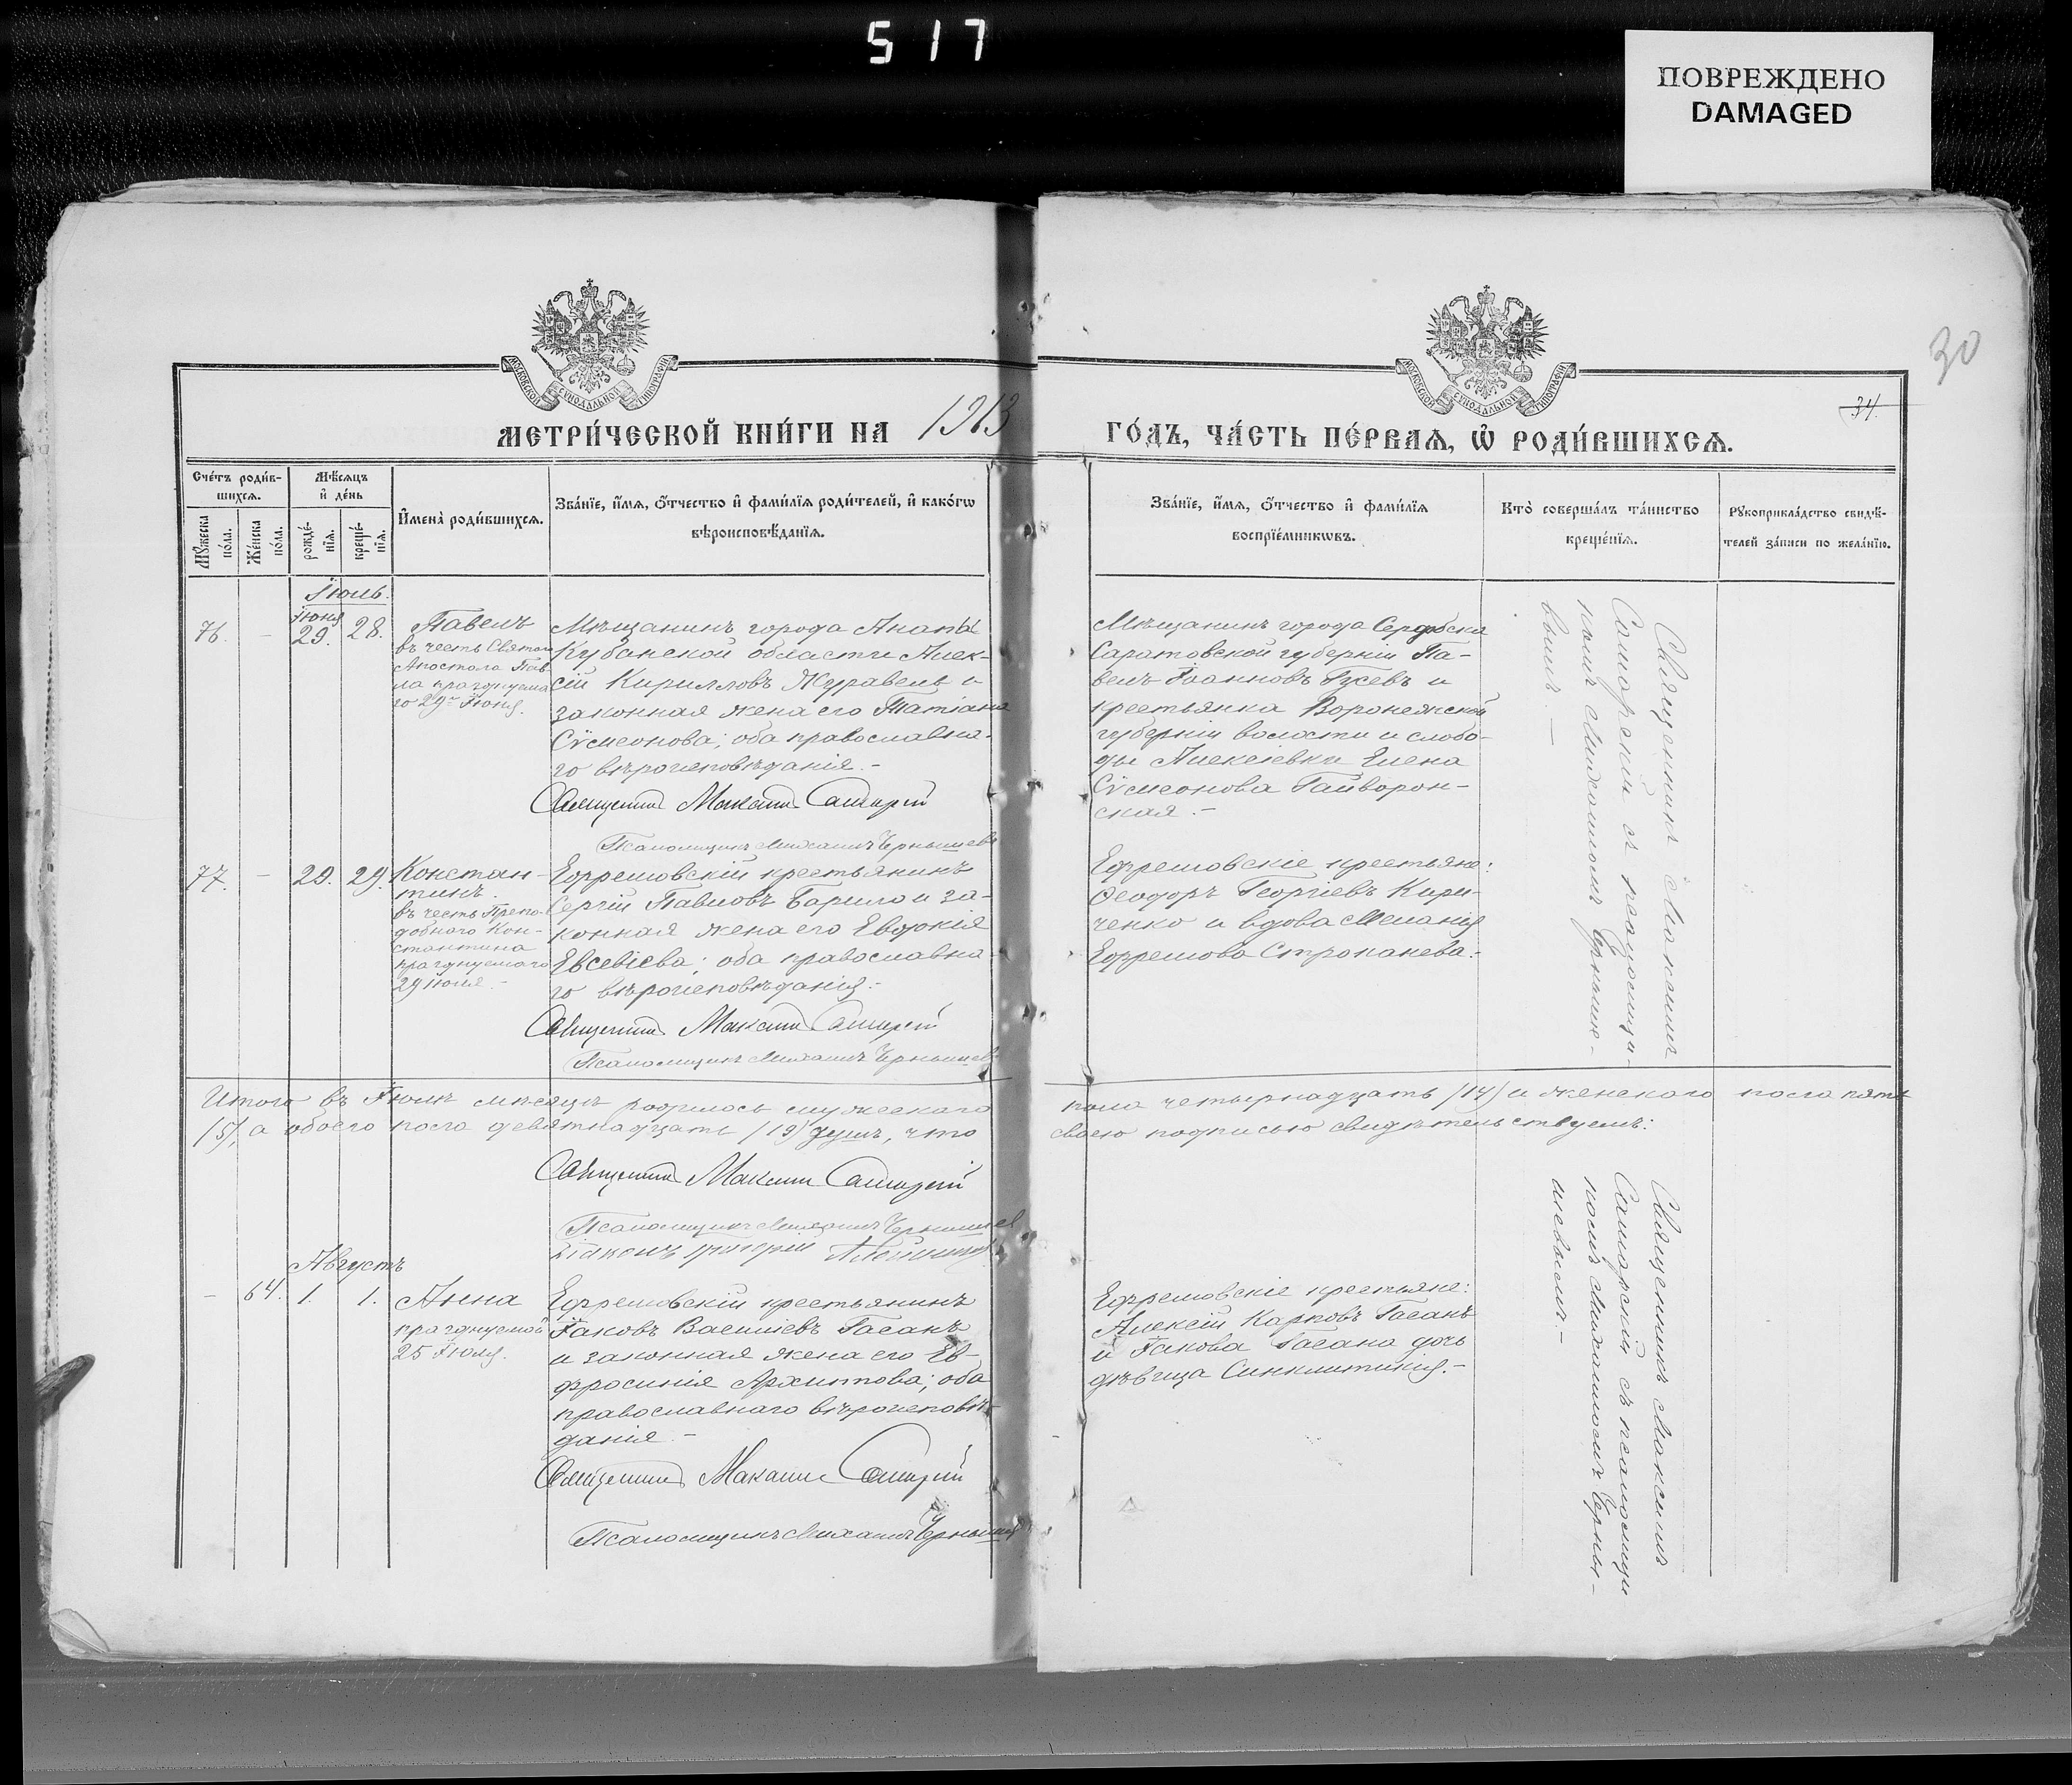 517
ПОВРЕЖДЕНО
DAMAGED
30
34.
МОСКОВСКОЙ СѴНОДАЛЬНОЙ ТИПОГРАФІИ
МОСКОВСКОЙ СѴНОДАЛЬНОЙ ТИПОГРАФІИ
МЕТРИ́ЧЕСКОЙ КНИ́ГИ НА 1913
ГО́ДЪ, ЧА́СТЬ ПЕ́РВАЯ, Ѡ РОДИ́ВШИХСЯ.
Сче́тъ роди́в-
шихся.
Мѣсяцъ
и де́нь
Мꙋжеска по́ла.
Же́нска по́ла.
рожде́-
нїя.
креще́-
нїя.
Имена̀ роди́вшихся.
Зва́нїе, и́мя, о́тчество и фами́лїя роди́телей, и како́гѡ
вѣроисповѣ́данїя.
Зва́нїе, и́мя, о́тчество и фами́лїя
воспрїе́мникѡвъ.
Кто̀ соверша́лъ та́инство
креще́нїя.
Рꙋкоприкла́дство свидѣ́-
телей за́писи по жела́нїю.
Іюль.
76. - Іюня 29. 28. Павелъ
въ честь Святаго
Апостола Пав-
ла празднуема
го 29го Іюня.
Мѣщанинъ города Анапы
Кубанской области Алек-
сій Кирилловъ Журавель и
законная жена его Татіана
Сѵмеонова; оба православна-
го вѣроисповѣданія.-
Священникъ Максимъ Самарскій
Псаломщикъ Михаилъ Чернышевъ
Мѣщанинъ города Сердобска
Саратовской губерніи Па-
велъ Іоанновъ Гусевъ и
крестьянка Воронежской
губерніи волости и слобо-
ды Алексѣевки Елена
Сѵмеонова Гайворон-
ская.-
Священникъ Максимъ
Самарскій съ псаломщи-
комъ Михаиломъ Чернышe-
вымъ.-
77. - 29. 29. Констан-
тинъ.
въ честь Препо-
добнаго Кон-
стантина
празднуемаго
29 Іюля.-
Ефремовскій крестьянинъ
Сергій Павловъ Барило и за-
конная жена его Евдокія
Евсевіева; оба православна-
го вѣроисповѣданія.-
Священникъ Максимъ Самарскій
Псаломщикъ Михаилъ Чернышевъ
Ефремовскіе крестьяне:
Ѳеодоръ Георгіевъ Кири-
ченко и вдова Меланія
Ефремова Строканева.-
Итого въ Іюлѣ мѣсяцѣ родилось мужескаго
пола четырнадцать /14/ и женскаго пола пять
/5/, а обоего пола девятнадцать /19/ душъ, что
своею подписью свидѣтельствуемъ:
Священникъ Максимъ Самарскій
Псаломщикъ Михаилъ Чернышев
Діаконъ Григорій
Августъ
- 64. 1. 1. Анна
празднуемой
25 Іюля.
Ефремовскій крестьянинъ
Іаковъ Василіевъ Гасанъ
и законная жена его Ев-
фросинія Архипова; оба
православнаго вѣроисповѣ-
данія.-
Священникъ Максимъ Самарскій
Псаломщикъ Михаилъ Чернышевъ
Ефремовскіе крестьяне:
Алексій Карповъ Гасанъ
и Іакова Гасана дочь
дѣвица Синклитикія.-
Священникъ Максимъ
Самарскій съ псаломщи
комъ Михаиломъ Черны-
шевымъ.-